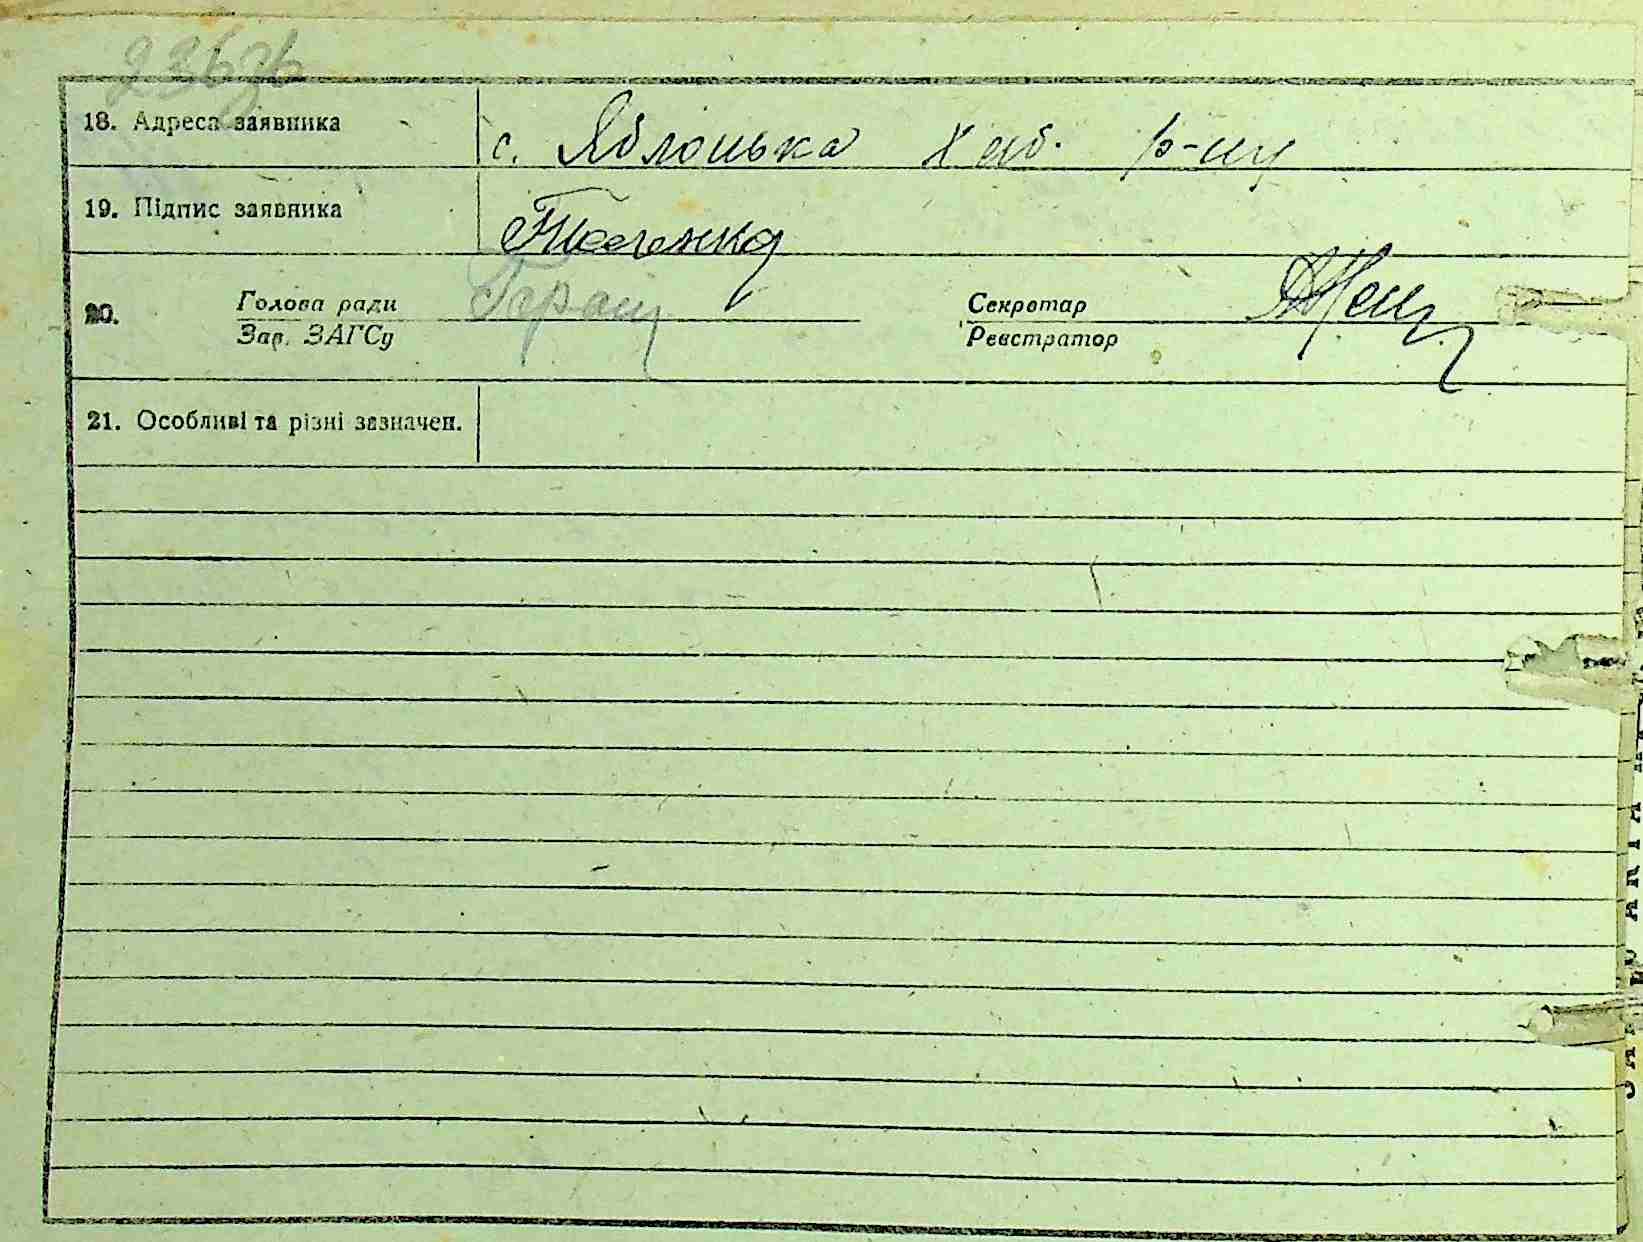 18. Адреса заявника с. Яблонька Хаб. р-ну
19. Підпис заявника
20. Голова ради Секретар
Зав. ЗАГСу Реєстратор
21. Особливі та різні зазначен.